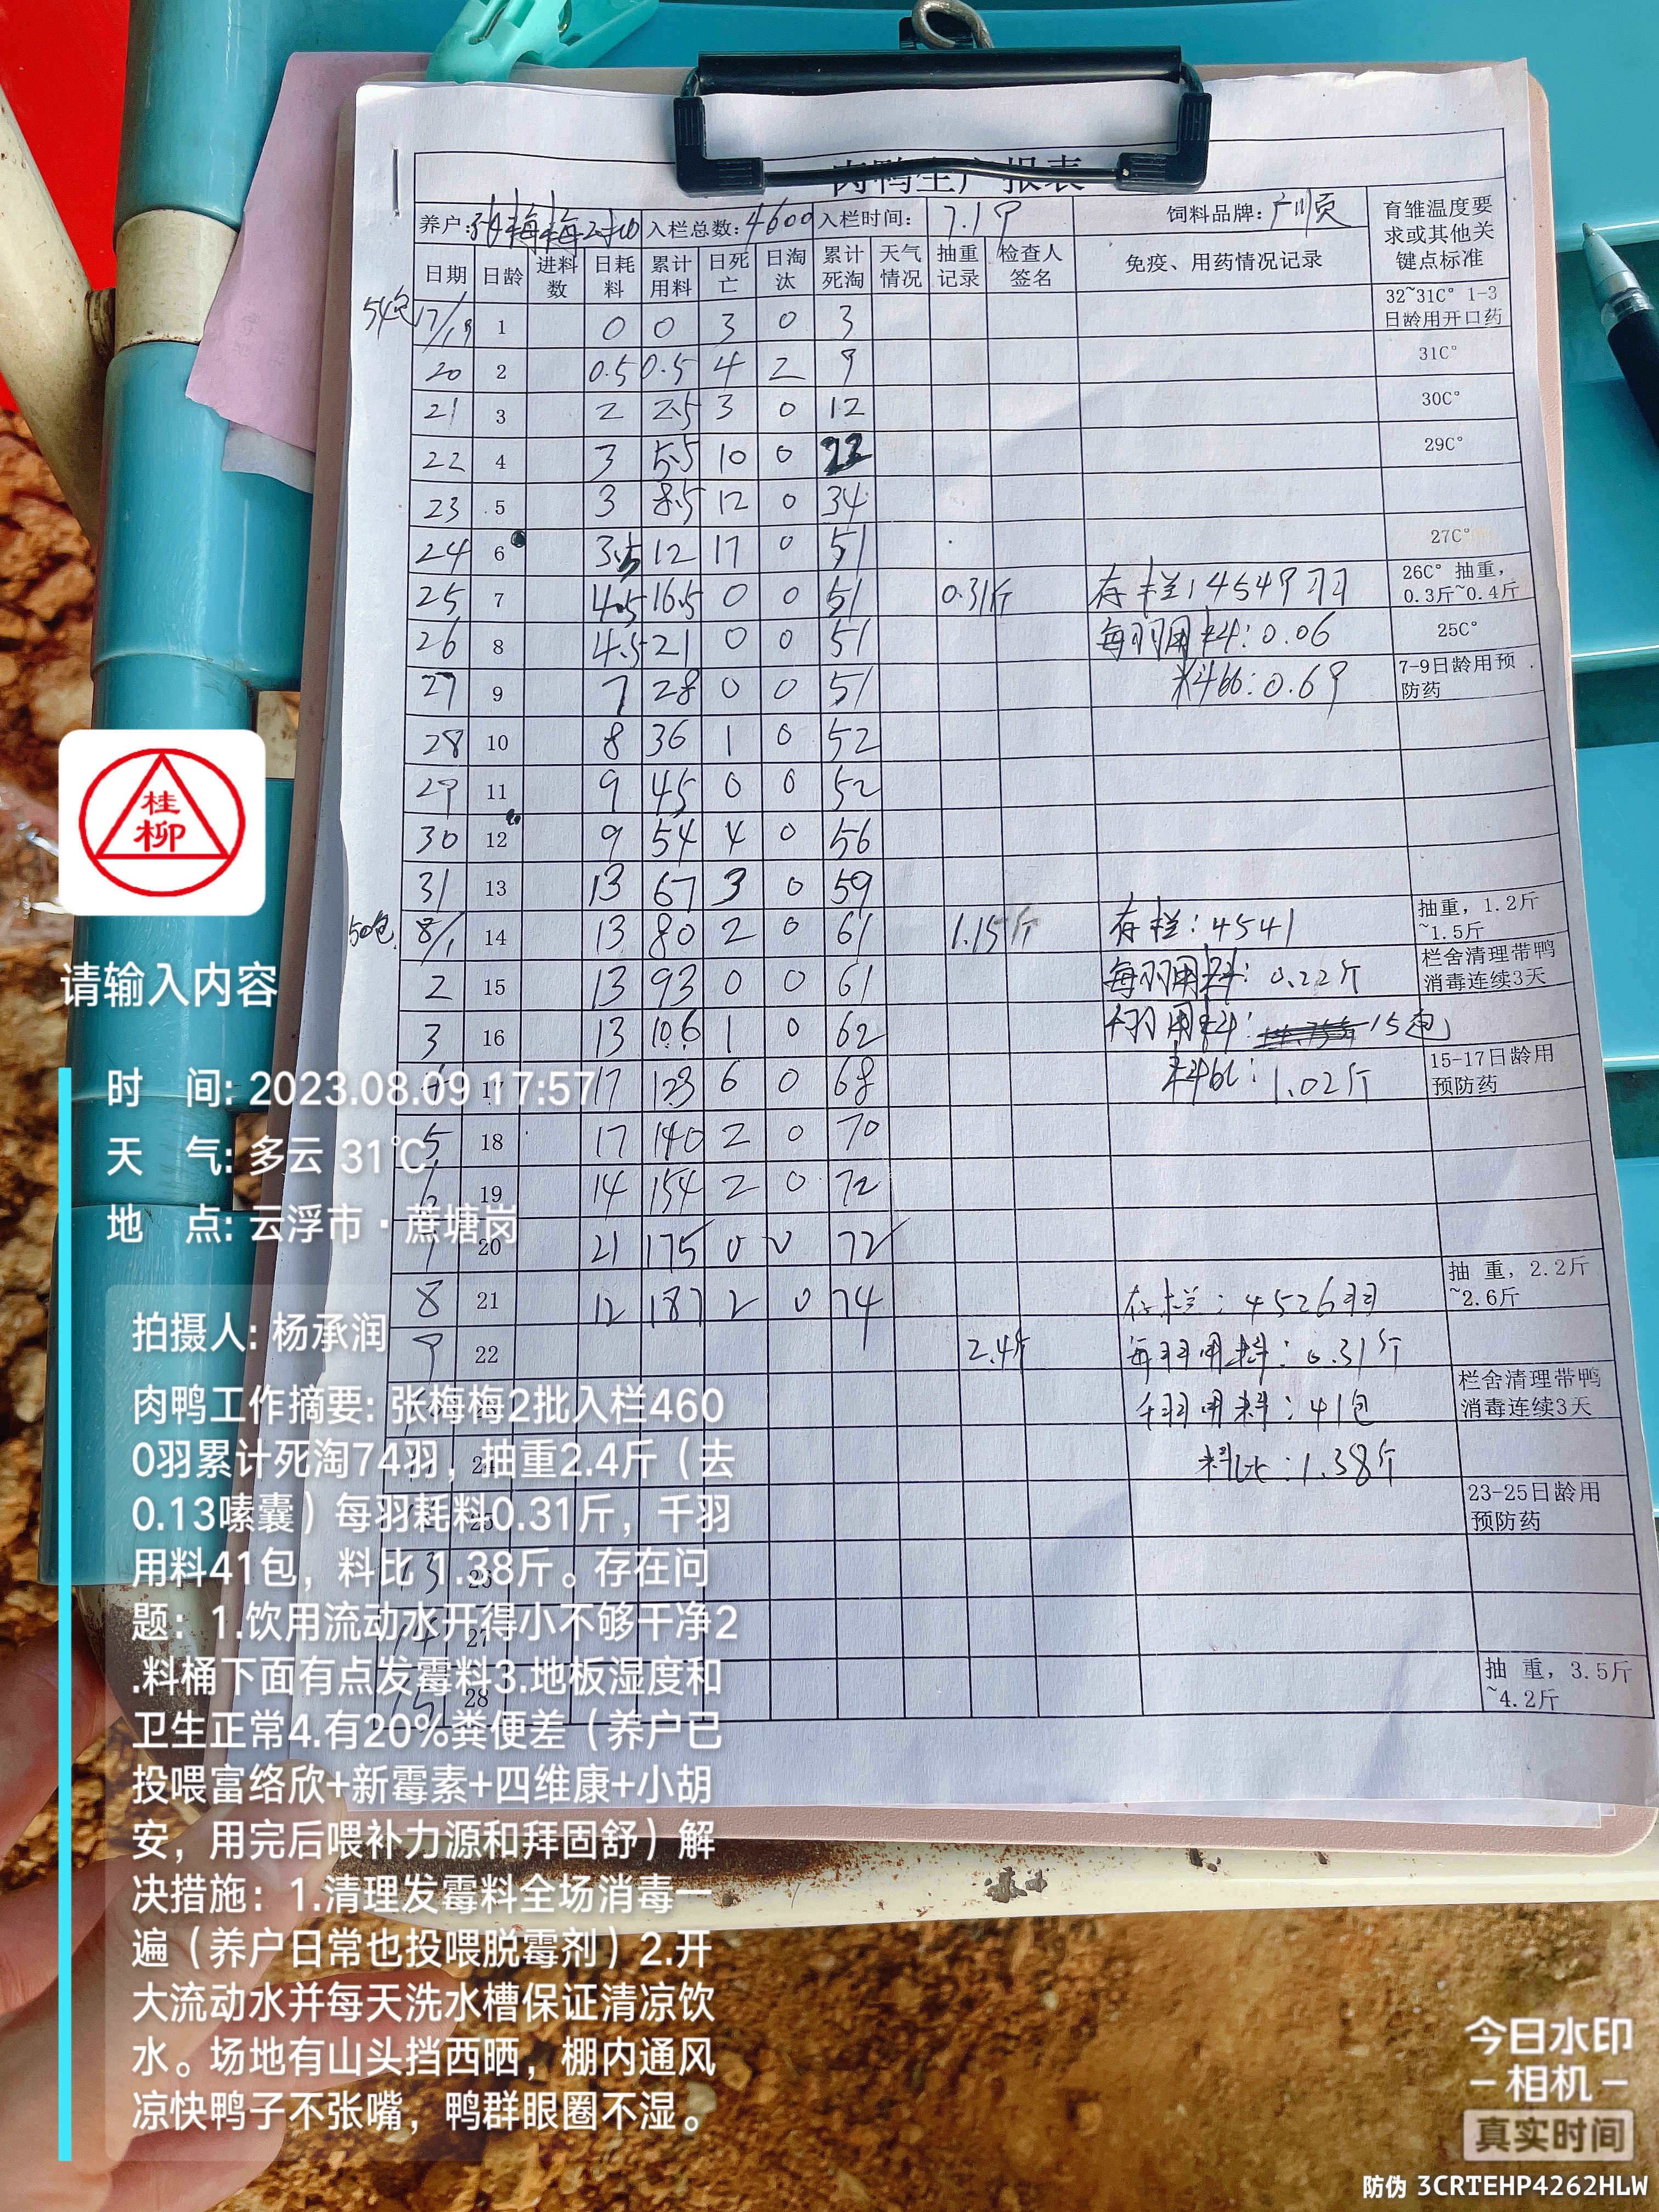 肉鸭生产报表
养户: 张梅梅2批 入栏总数: 4600 入栏时间: 7.19 饲料品牌: 广顺 育雏温度要求或其他关键点标准
日期 日龄 进料数 日耗料 累计用料 日死亡 日淘汰 累计死淘 天气情况 抽重记录 检查人签名 免疫、用药情况记录
54包 7/19 1 0 0 3 0 3 32~31C° 1-3日龄用开口药
20 2 0.5 0.5 4 2 9 31C°
21 3 2 2.5 3 0 12 30C°
22 4 3 5.5 10 0 22 29C°
23 5 3 8.5 12 0 34
24 6 3.5 12 17 0 51 27C°
25 7 4.5 16.5 0 0 51 0.31斤 存栏: 4549羽 26C° 抽重，0.3斤~0.4斤
26 8 4.5 21 0 0 51 每羽用料: 0.06 25C°
27 9 7 28 0 0 51 料比: 0.69 7-9日龄用预防药
28 10 8 36 1 0 52
29 11 9 45 0 0 52
30 12 9 54 4 0 56
31 13 13 67 3 0 59
50包 8/1 14 13 80 2 0 61 1.15斤 存栏: 4541 抽重，1.2斤~1.5斤
2 15 13 93 0 0 61 每羽用料: 0.22斤 栏舍清理带鸭消毒连续3天
3 16 13 106 1 0 62 千羽用料: 15包
4 17 17 123 6 0 68 料比: 1.02斤 15-17日龄用预防药
5 18 17 140 2 0 70
6 19 14 154 2 0 72
7 20 21 175 0 0 72
8 21 12 187 2 0 74 存栏: 4526羽 抽 重，2.2斤~2.6斤
9 22 2.4斤 每羽用料: 0.31斤
23 千羽用料: 41包 栏舍清理带鸭消毒连续3天
24 料比: 1.38斤
25 23-25日龄用预防药
13 26
14 27
15 28 抽 重，3.5斤~4.2斤
桂
柳
请输入内容
时 间: 2023.08.09 17:57
天 气: 多云 31℃
地 点: 云浮市·蔗塘岗
拍摄人: 杨承润
肉鸭工作摘要: 张梅梅2批入栏460
0羽累计死淘74羽，抽重2.4斤（去
0.13嗉囊）每羽耗料0.31斤，千羽
用料41包，料比 1.38斤。存在问
题：1.饮用流动水开得小不够干净2
.料桶下面有点发霉料3.地板湿度和
卫生正常4.有20%粪便差（养户已
投喂富络欣+新霉素+四维康+小胡
安，用完后喂补力源和拜固舒）解
决措施：1.清理发霉料全场消毒一
遍（养户日常也投喂脱霉剂）2.开
大流动水并每天洗水槽保证清凉饮
水。场地有山头挡西晒，棚内通风
凉快鸭子不张嘴，鸭群眼圈不湿。
今日水印
－相机－
真实时间
防伪 3CRTEHP4262HLW